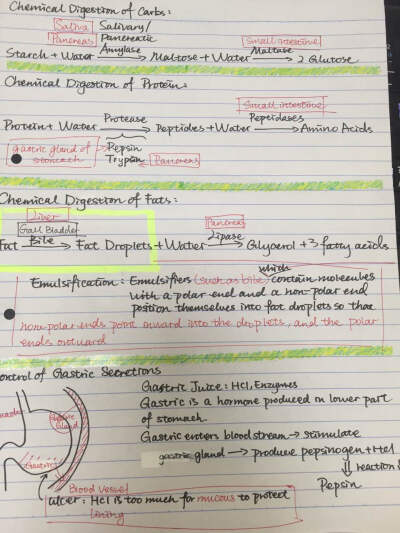 Chemical Digestion of Carbs:
Saliva Salivary/
Pancreas Pancreatic Small intestine
Amylase Maltase
Starch + Water → Maltose + Water → 2 Glutose
Chemical Digestion of Protein:
Small intestine
Protease Peptidases
Protein + Water → Peptides + Water → Amino Acids
gastric gland of stomach
Pepsin
Trypsin Pancreas
Chemical Digestion of Fats:
Liver
Gall Bladder Pancreas
Bile Lipase
Fat → Fat Droplets + Water → Glycerol + 3 fatty acids
which
Emulsification: Emulsifiers (such as bile) contain molecules
with a polar end and a non-polar end
position themselves into fat droplets so that
non-polar ends point inward into the droplets, and the polar
ends outward
ontrol of Gastric Secretions
Gastric Juice: HCl, Enzymes
Gastric is a hormone produced in lower part
of stomach.
Gastric enters bloodstream → stimulate
gastric gland → produce pepsinogen + HCl
⇓ reaction
Pepsin
Gastric gland
Gastric
Blood Vessel
Ulcer: HCl is too much for mucous to protect
lining